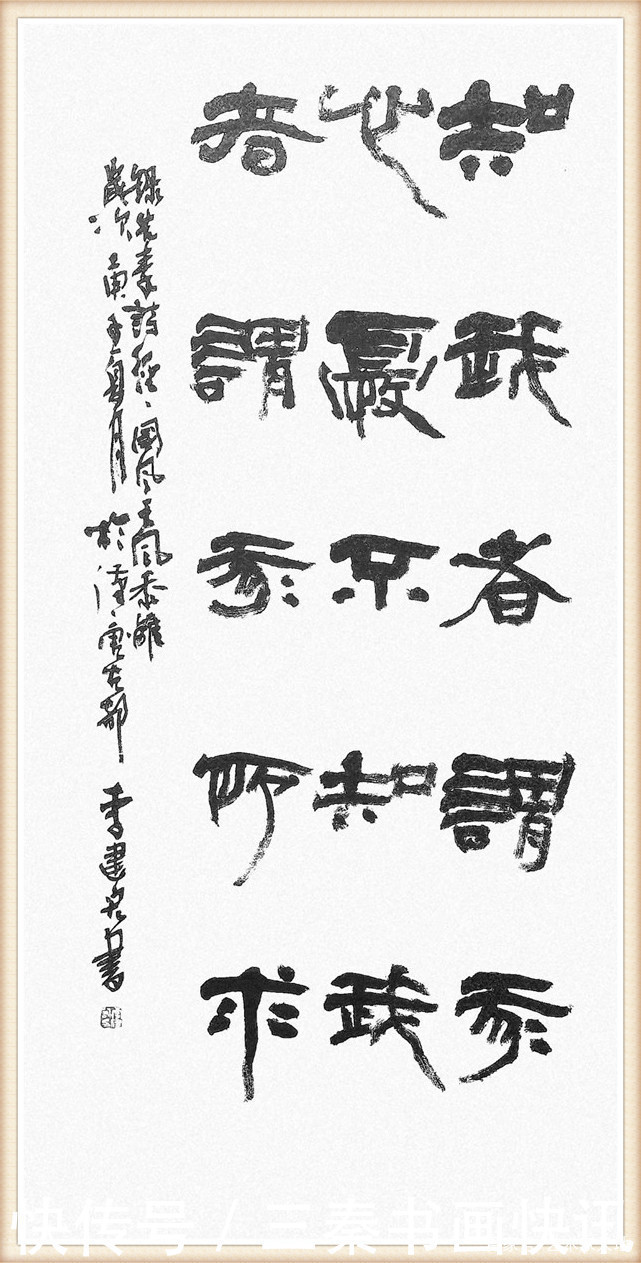 知我者謂我
心憂不知我
者謂我何求
錄先秦詩經、國風王風黍離
歲次庚子夏月於漢唐古都 建書
快传号 / 三秦书画快讯